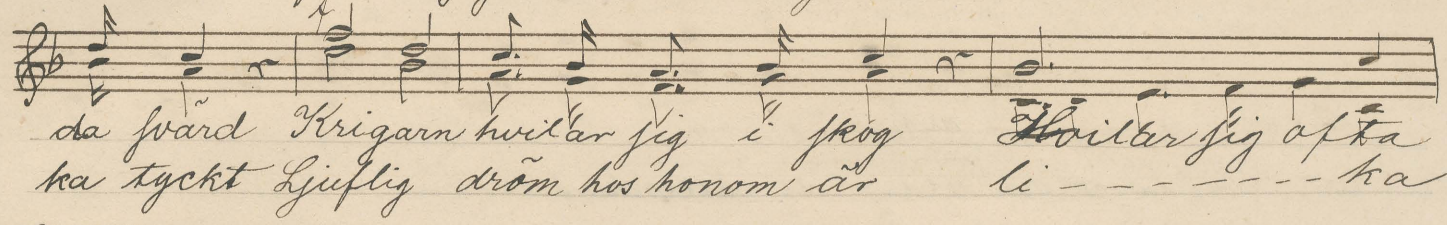 da svärd Krigarn hvilar sig i skog Hvilar sig ofta
ka tyckt Ljuflig dröm hos honom är li - - - - - - - - ka